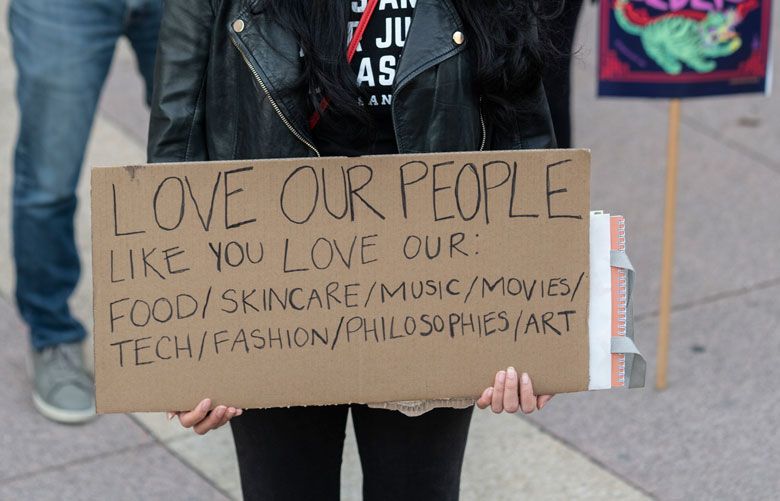 JU
AS
SAN
LOVE OUR PEOPLE
LIKE YOU LOVE OUR:
FOOD/SKINCARE/MUSIC/MOVIES/
TECH/FASHION/PHILOSOPHIES/ART